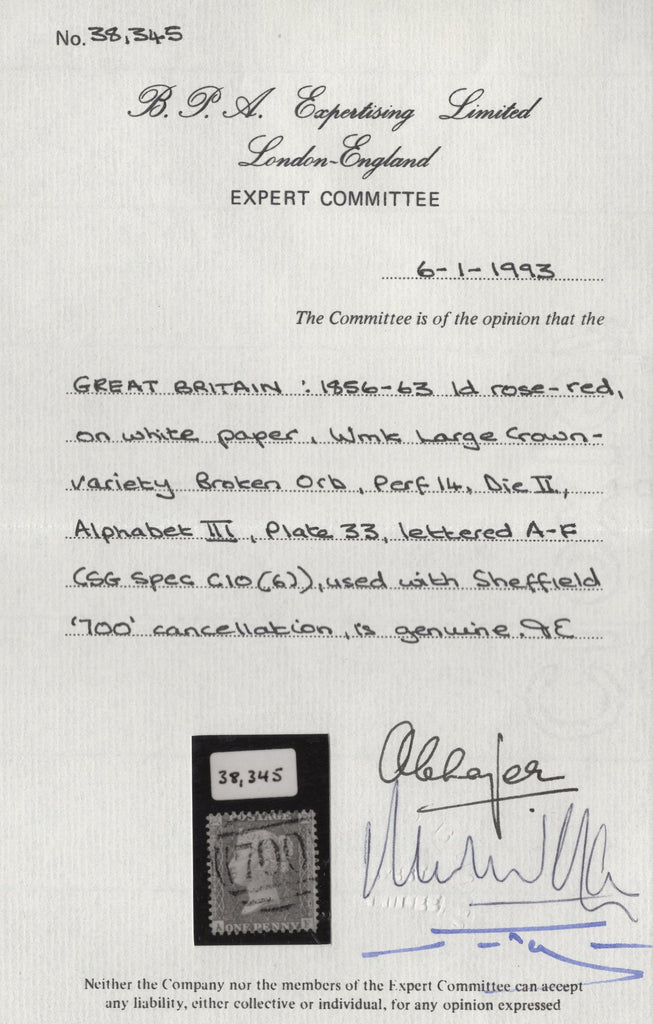 No. 38,345
B. P. A. Expertising Limited
London-England
EXPERT COMMITTEE
6-1-1993
The Committee is of the opinion that the
GREAT BRITAIN : 1856-63 1d rose-red,
on white paper, Wmk Large Crown-
variety Broken Orb, Perf 14, Die II,
Alphabet III, Plate 33, lettered A-F
(SG Spec C10(6)), used with Sheffield
'700' cancellation, is genuine.
38,345
POSTAGE
700
A ONE PENNY F
Neither the Company nor the members of the Expert Committee can accept
any liability, either collective or individual, for any opinion expressed